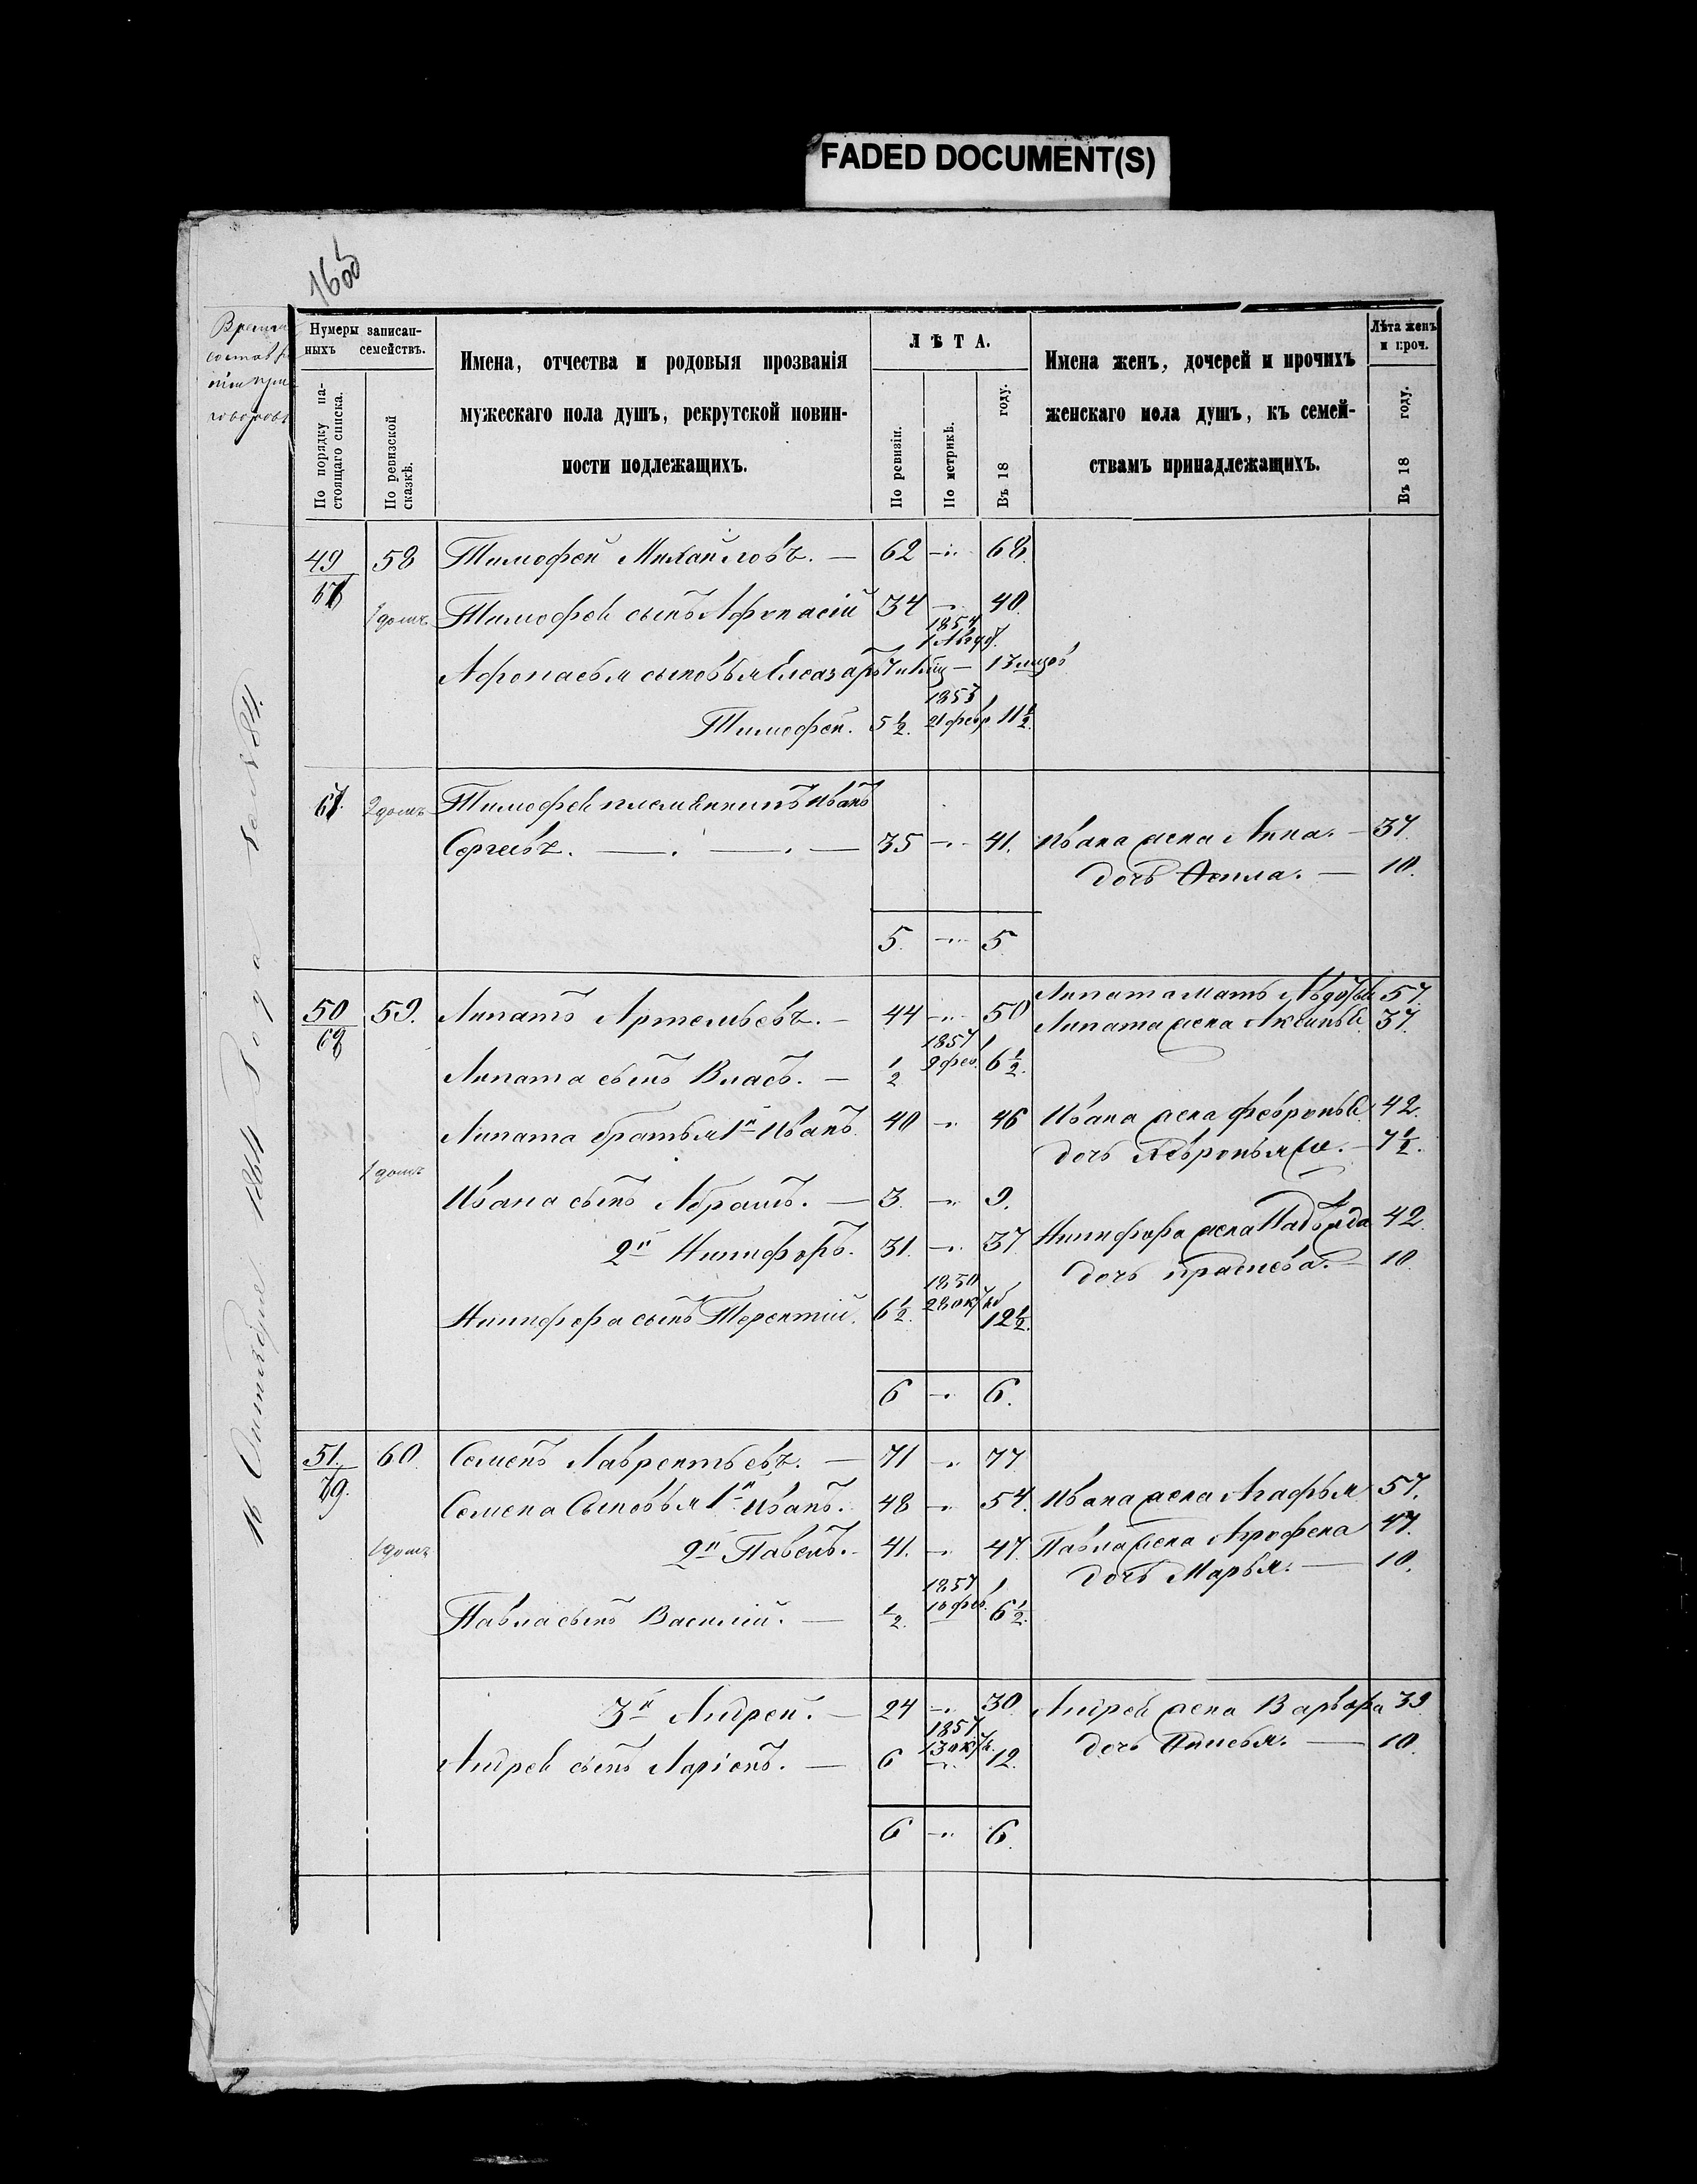 FADED DOCUMENT(S)
16об
Нумеры записан-
ныхъ семействъ.
По порядку на-
стоящаго списка.
По ревизской
сказкѣ.
Имена, отчества и родовыя прозванія
мужескаго пола душъ, рекрутской повин-
ности подлежащихъ.
ЛѢТА.
По ревизіи.
По метрикѣ.
Въ 18 году.
Имена женъ, дочерей и прочихъ
женскаго пола душъ, къ семей-
ствамъ принадлежащихъ.
Лѣта женъ
и проч.
Въ 18 году.
1864 Года за № 84.
49 58 Тимофей Михайловъ. — 62 — 68.
1 домъ Тимофея сынъ Афонасій 34 — 40.
1854
Афонасья сыновья Елеазаръ 13
1853
Тимофей. 5½. 21 февр. 11½.
67. 2 домъ Тимофея племянникъ Иванъ
Сергѣевъ. — 35 — 41. Ивана жена Анна. — 37.
дочь Фекла. — 10.
5. — 5
Липата мать Авдотья 57.
50 59. Липатъ Артемьевъ. — 44 — 50 Липата жена Аксинья 37.
68
1857
Липата сынъ Власъ. — ½ 9 фев. 6½.
Липата братья 1й Иванъ 40 — 46 Ивана жена Февронья 42.
дочь — 7½.
1 домъ
Ивана сынъ Абрамъ. — 3. — 9.
2й Никифоръ. 31. — 37 Никифора жена 42.
дочь — 10.
1850
Никифора сынъ Терентій. 6½. 28 окт. 12½.
6 — 6.
51. 60 Семенъ Лаврентьевъ. — 71 — 77
Семена Сыновья 1й Иванъ. 48 — 54. Ивана жена Агафья 57.
1 домъ 2й Павелъ. 41. — 47 Павла жена Агрофена 47.
дочь Марья. — 10.
1857
Павла сынъ Василій. — ½. фев. 6½.
3й Андрей. — 24 — 30 Андрея жена Варвара 39
1851
13 окт.
Андрея сынъ Ларіонъ. — 6 — 12. дочь — 10.
6 — 6.